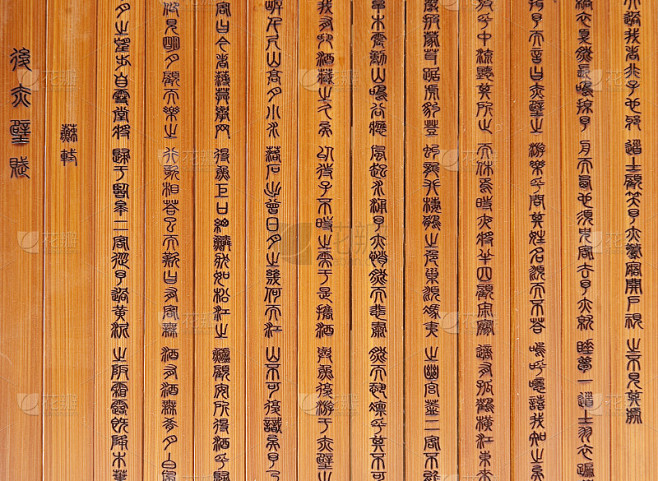 後赤壁賦
蘇軾
月之望步自雪堂將歸于臨皋二客從予過黃泥之坂霜露既降木葉
仰見明月顧而樂之行歌相答已而歎曰有客無酒有酒無肴月白風
客曰今者薄暮舉網得魚巨口細鱗狀如松江之鱸顧安所得酒乎歸
岸千尺山高月小水落石出曾日月之幾何而江山不可復識矣予乃
我有斗酒藏之久矣以待子不時之需于是攜酒與魚復游于赤壁之
草木震動山鳴谷應風起水涌予亦悄然而悲肅然而恐凜乎其不可
巖披蒙茸踞虎豹登虬龍攀棲鶻之危巢俯馮夷之幽宮蓋二客不能
放乎中流聽其所止而休焉時夜將半四顧寂寥適有孤鶴橫江東來
揖予而言曰赤壁之游樂乎問其姓名俛而不答嗚呼噫嘻我知之矣
縞衣戛然長鳴掠予舟而西也須臾客去予亦就睡夢一道士羽衣蹁
過我者非子也耶道士顧笑予亦驚寤開戶視之不見其處